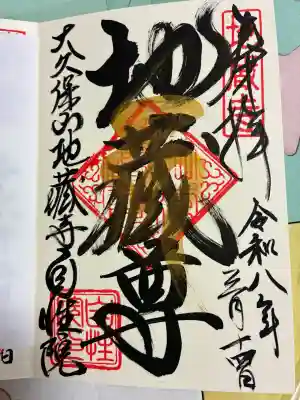 奉拝
令和八年
三月十四日
地蔵尊
大久保山地蔵寺自性院
日